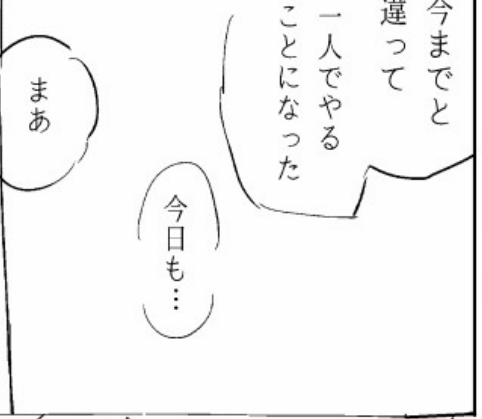 今までと
違って
一人でやる
ことになった
今日も…
まあ